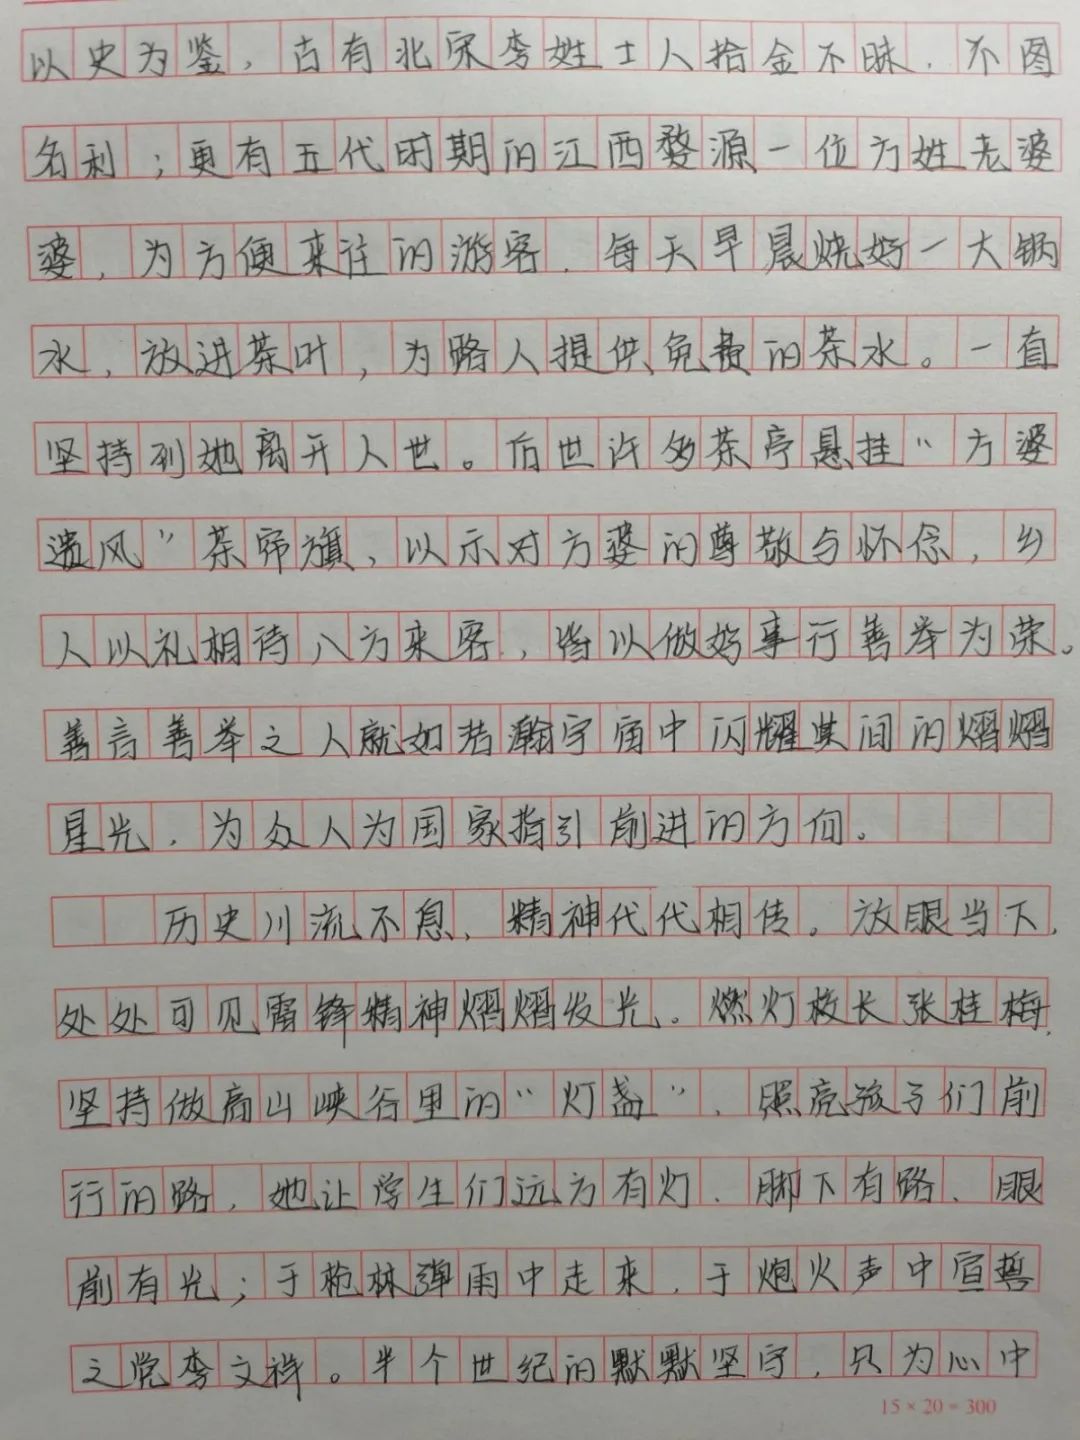 以史为鉴，古有北宋李姓士人拾金不昧，不图
名利；更有五代时期的江西婺源一位方姓老婆
婆，为方便来往的游客，每天早晨烧好一大锅
水，放进茶叶，为路人提供免费的茶水。一直
坚持到她离开人世。后世许多茶亭悬挂“方婆
遗风”茶帘旗，以示对方婆的尊敬与怀念，乡
人以礼相待八方来客，皆以做好事行善举为荣。
善言善举之人就如浩瀚宇宙中闪耀其间的熠熠
星光，为众人为国家指引前进的方向。
历史川流不息，精神代代相传。放眼当下，
处处可见雷锋精神熠熠发光。燃灯校长张桂梅，
坚持做高山峡谷里的“灯盏”，照亮孩子们前
行的路，她让学生们远方有灯、脚下有路、眼
前有光；于枪林弹雨中走来，于炮火声中宣誓
之党李文祥。半个世纪的默默坚守，只为心中
15×20=300